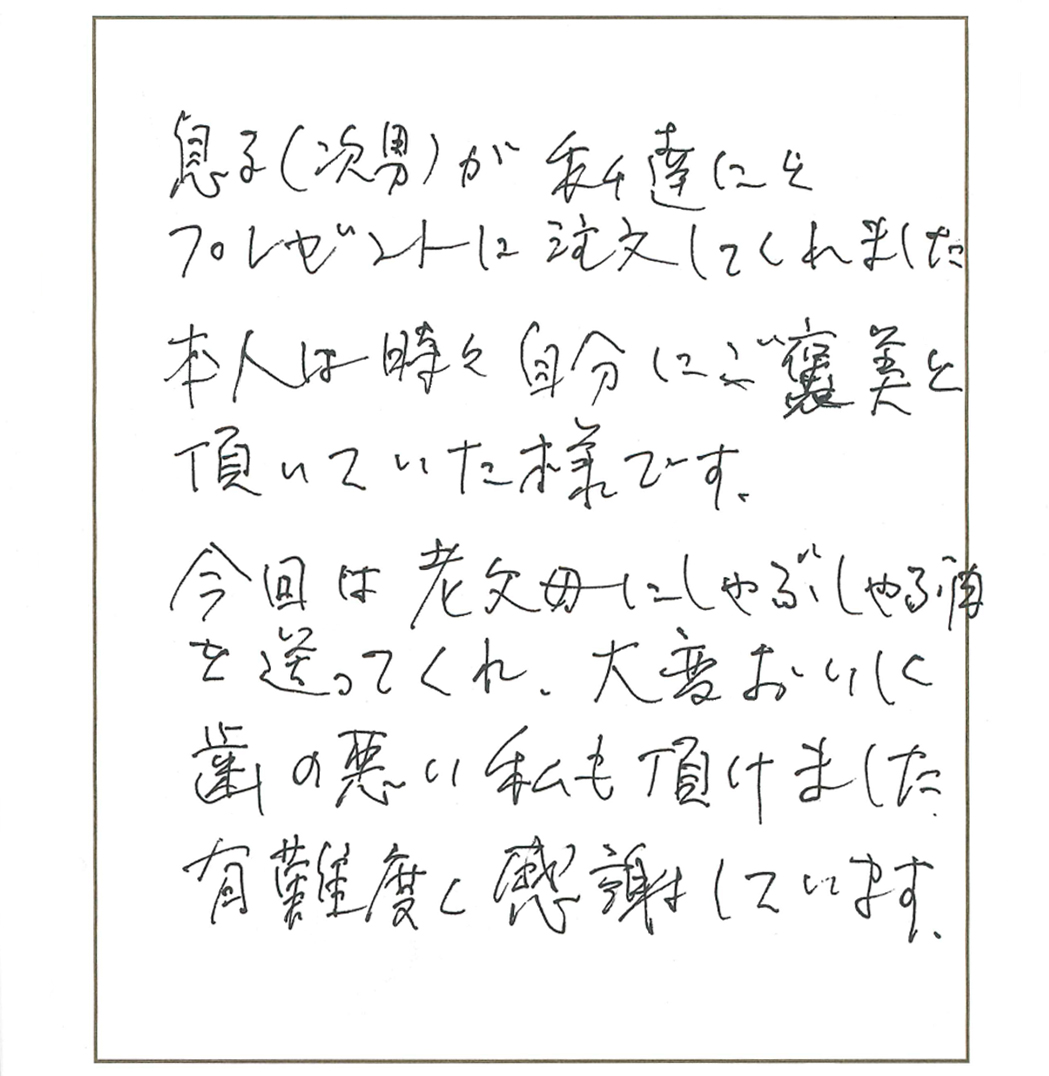 息子(次男)が私達にと
プレゼントに注文してくれました
本人は時々自分にご褒美と
頂いていた様です。
今回は老父母にしゃぶしゃぶ用
を送ってくれ、大変おいしく
歯の悪い私も頂けました
有難度く感謝しています。